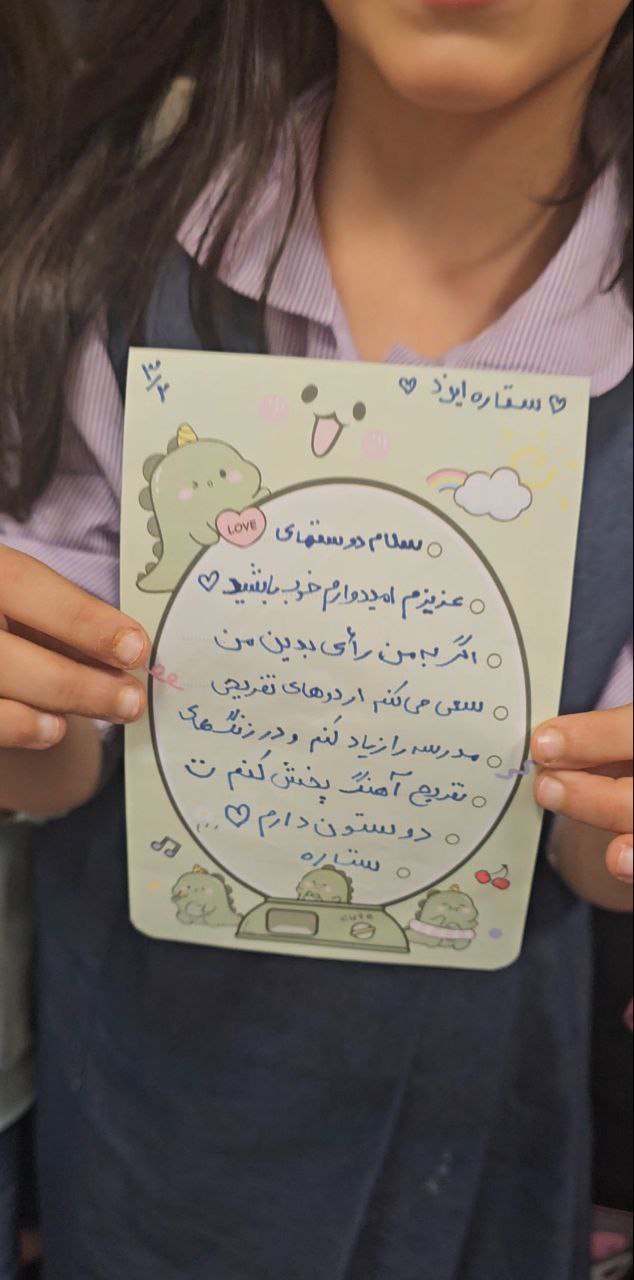 ♡ ستاره ایزد ♡
۳/۴
LOVE
سلام دوستهای
عزیزم امیدوارم خوب باشید ♡
اگر به من رأی بدین من
سعی می‌کنم اردوهای تفریحی
مدرسه را زیاد کنم و در زنگ‌های
تفریح آهنگ پخش کنم
دوستون دارم ♡
ستاره
cute